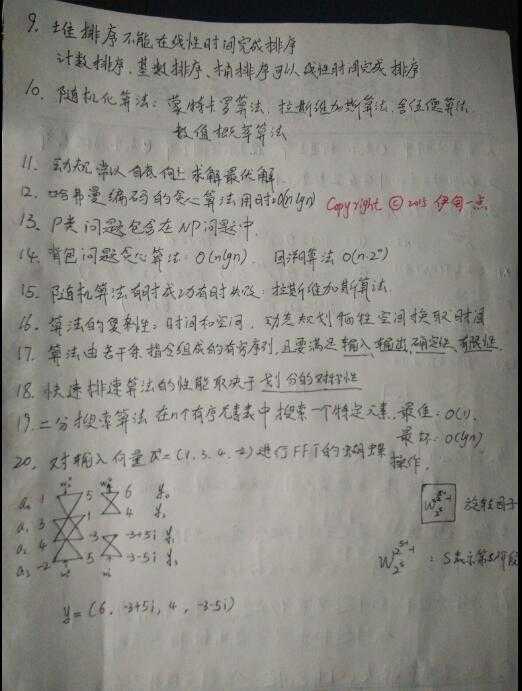 9. 堆排序不能在线性时间完成排序
计数排序、基数排序、桶排序可以线性时间完成排序
10. 随机化算法: 蒙特卡罗算法, 拉斯维加斯算法, 舍伍德算法,
数值概率算法
11. 动规常以自底向上求解最优解
12. 哈弗曼编码的贪心算法用时: O(nlgn) Copyright © 2015 伊甸一点
13. P类问题包含在NP问题中.
14. 背包问题贪心算法: O(nlgn), 回溯算法 O(n·2ⁿ)
15. 随机算法有时成功有时失败: 拉斯维加斯算法
16. 算法的复杂性: 时间和空间, 动态规划牺牲空间换取时间
17. 算法由若干条指令组成的有穷序列, 且要满足输入、输出、确定性、有限性.
18. 快速排速算法的性能取决于划分的对称性
19. 二分搜索算法在n个有序元素表中搜索一个特定元素, 最佳: O(1),
最坏: O(lgn)
20. 对输入向量 = (1, 3, 4, -2) 进行FFT的蝴蝶操作.
a₀ 1 5 6 y₀
a₁ 3 4 y₂
a₂ 4 -3 -3+5i y₁
a₃ -2 5 -3-5i y₃
旋转因子
: S表示第S阶段
y = (6, -3+5i, 4, -3-5i)